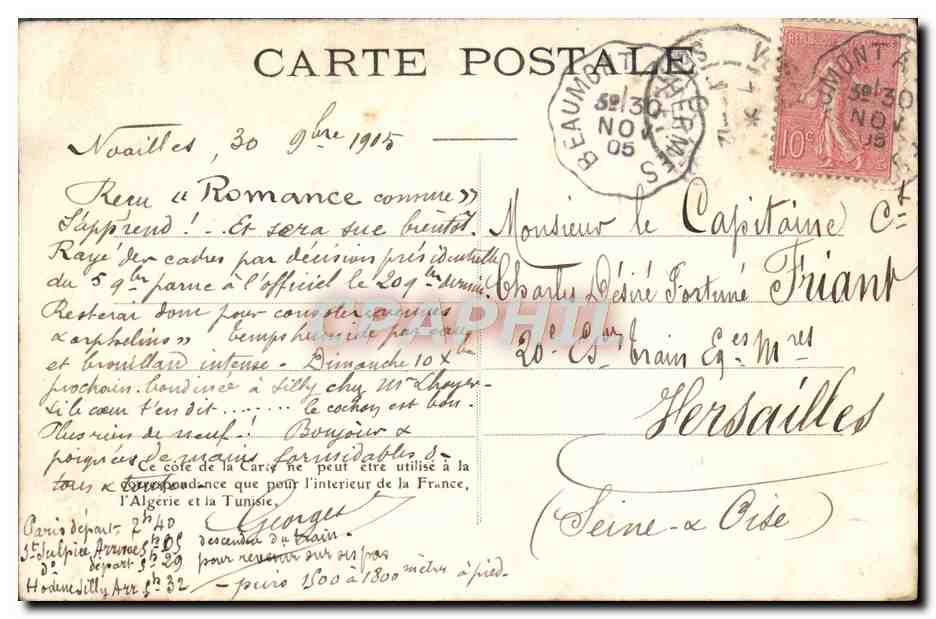 CARTE POSTALE
BEAUMONT
HERMES
30
NOV
05
REPUB
10c
UMONT A
30
NOV
05
Noailles, 30 9bre 1905
Recu "Romance comme"
S'apprend! .. Et sera sue bientôt.
Rayé des cadres par décision présidentielle
du 5 9bre parue à l'officiel le 20 9bre dernier.
Resterai donc pour consoler
orphelins" temps humide par eau
et brouillard intense. Dimanche 10 Xbre
prochain. boudinée à Silly chez Mr Lhoyer-
si le cœur t'en dit ........ le cochon est bon.
Plus rien de neuf! Bonjour &
poignées de mains formidables à
tous & toutes.
Georges
Monsieur le Capitaine Ct
Charles Désiré Fortuné Friant
20e Eon train Eqes Mres
Versailles
(Seine & Oise)
CPAPHIL
Ce côté de la Carte ne peut être utilisé à la
correspondance que pour l'interieur de la France,
l'Algérie et la Tunisie.
Paris départ 7h 40
St Sulpice Arrivée 9h 05 descendre du train.
do départ 9h 29 pour revenir sur ses pas
Hodenc Silly Arr 9h 32 - puis 1500 à 1800 mètres à pied-